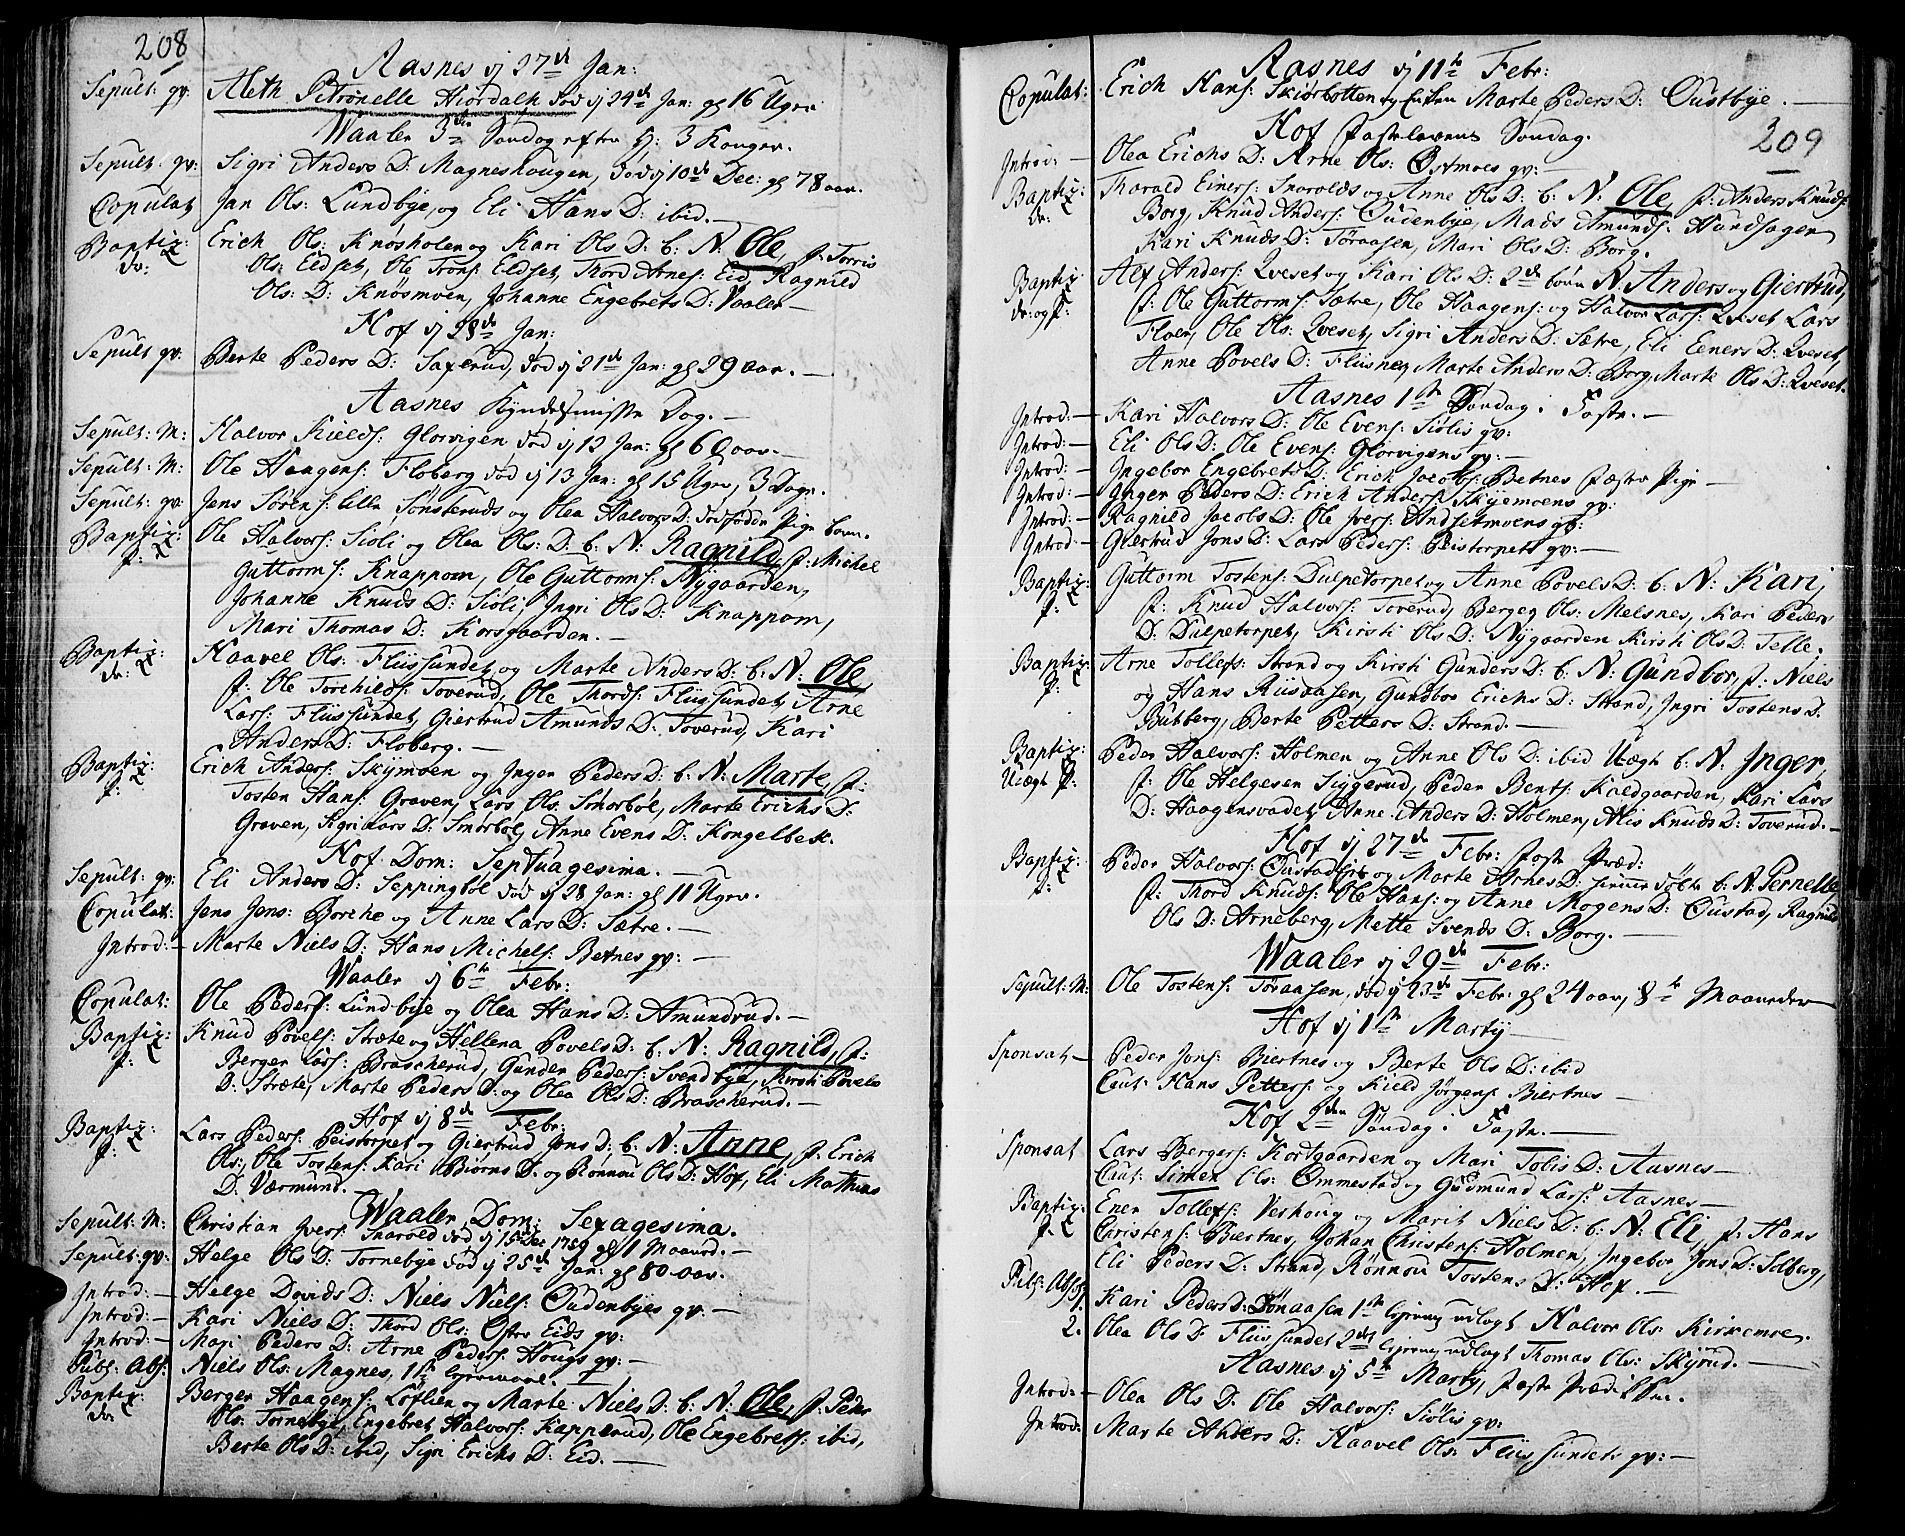 208
Aasnes d 27de Jan:
Sepult: qv: Aleth Petronelle Hiordalh død d 24de Jan: gl 16 Uger
Waaler 3die Søndag efter H: 3 Konger.
Sepult: qv: Sigri Anders D: Magneshougen, død d 10de Dec: gl 78 aar.
Copulat Jan Ols: Lundbye, og Eli Hans D: ibid.—
Baptiz: Erich Ols: Knøsholen og Kari Ols D: b: N: Ole, f: Torris
dr: Ols: Eidset, Ole Trons: Eidset, Thord Arnes: Eid, Ragnild
Ols: D: Knøsmoen, Johanne Engebrets D: Vaaler—
Hof d 28de Jan:
Sepult qv: Berte Peders D: Saxerud, død d 21de Jan: gl 29 aar.—
Aasnes Kyndelsmisse Dag.—
Sepult: M: Halvor Kields: Glorvigen død d 12 Jan: gl 60 aar.—
Sepult: M: Ole Haagens: Floberg død d 13 Jan: gl 15 Uger, 3 Dage.
Sepult: qv: Jens Sørens: lille Sønsteruds og Olea Halvors D: dødfødde Pige barn.
Baptiz: Ole Halvors: Siøli og Olea Ols: D: b: N: Ragnild, f: Michel
p: Guttorms: Knappom, Ole Guttorms: Nygaarden,
Johanne Knuds D: Siøli, Ingri Ols D: Knappom,
Mari Thomas D: Korsgaarden.—
Baptiz: Haavel Ols: Fliissundet, og Marte Anders D: b: N: Ole,
dr: f: Ole Torchilds: Toverud, Ole Thords: Fliissundet, Arne
Lars: Fliissundet, Giertrud Amunds D: Toverud, Kari
Anders D: Floberg.—
Baptiz: Erich Anders: Skÿmoen og Inger Peders D: b: N: Marte, f:
p: Tosten Hans: Graven, Lars Ols: Smørbøl, Marte Erichs D:
Graven, Sigri Lars D: Smørbøl, Anne Evens D: Kongelbek.
Hof Dom: Septuagesima.—
Sepult: qv: Eli Anders D: Seppingbøl død d 28 Jan: gl 11 Uger.
Copulat: Jens Jens: Borche og Anne Lars D: Sætre.—
Introd:— Marte Niels D: Hans Michels: Betnes qv:—
Waaler d 6te Febr:
Copulat: Ole Peders: Lundbye og Olea Hans D: Amundrud.—
Baptiz: Knud Povels: Stræte og Hellena Povels D: b: N: Ragnild, f:
p: Berger Lars: Brascherud, Gunder Peders: Svendbye, Kirsti Povels
D: Stræte, Marte Peders D: og Olea Ols D: Brascherud.—
Hof d 8de Febr:
Baptiz: Lars Peders: Peistorpet og Giertrud Jons D: b: N: Anne, f: Erich
p: Ols:, Ole Tostens: Kari Biørns D: og Rønnou Ols D: Hof, Eli Mathias
D: Værmund.
Waaler, Dom: Sexagesima.
Sepult: M: Christian Ivers: Snarold død d 15de Dec 1759 gl 1 Maaned.—
Sepult: qv: Helge Ols D: Tornebÿe død d 25de Jan: gl 80 aar.
Introd:— Helge Davids D: Niels Niels: Oudenbyes qv:—
Introd:— Kari Niels D: Thord Ols: Østre Eids qv:
Introd:— Mari Peders D: Arne Peders: Hougs qv:—
Publ: Abs: Niels Ols: Magnes, 1ste Leiermaal.—
Baptiz: Berger Haagens: Løflien og Marte Niels D: b: N: Ole, f: Peder
dr: Ols: Tornebÿe, Engebret Halvors: Kapperud, Ole Engebrets: ibid,
Berte Ols D: ibid, Sigri Erichs D: Eid.—
Aasnes d 11te Febr:
Copulat: Erich Hans: Skiærbotten og Enken Marte Peders D: Oustbye.—
209
Hof Fastelavens Søndag.
Introd:— Olea Erichs D: Arne Ols: Østmoes qv:
Baptiz: Tharald Einers: Snarolds og Anne Ols D: b: N: Ole, f: Anders Knuds:
dr: Borg, Knud Anders: Oudenbye, Mads Amunds: Hundsagen
Kari Knuds D: Tøraasen, Mari Ols D: Borg.
Baptiz: Alf Anders: Qveset og Kari Ols D: 2de børn N: Anders og Giertrud,
dr: og p: f: Ole Guttorms: Sætre, Ole Haagens: og Halvor Lars: Qveset Lars
Floer, Ole Ols: Qveset, Sigri Anders D: Sætre, Eli Eeners D: Qveset,
Anne Povels D: Fliisnes, Marte Anders D: Borg, Marte Ols D: Qveset.
Aasnes 1ste Søndag i Faste.—
Introd:— Kari Halvors D: Ole Evens: Siølis qv:
Introd:— Eli Ols D: Ole Evens: Glorvigens qv:—
Introd:— Ingebor Engebrets D: Erich Jacobs: Betnes Fæste Pige—
Introd:— Inger Peders D: Erich Anders: Skÿemoens qv:
Introd:— Ragnild Jacobs D: Ole Ivers: Andsetmoens qv:
Introd:— Giertrud Jons D: Lars Peders: Peistorpets qv:—
Baptiz: Guttorm Tostens: Dulpetorpet og Anne Povels D: b: N: Kari,
p: f: Knud Halvors: Toverud, Berger Ols: Melsnes, Kari Peders
D: Dulpetorpet, Kirsti Ols D: Nÿgaarden Kirsti Ols D: Telle.
Baptiz: Arne Tollefs: Strand og Kirsti Gunders D: b: N: Gundbor, f: Niels
p: og Hans Riisaasen, Gundbor Erichs D: Strand, Ingri Tostens D:
Bubberg, Berte Petters D: Strand.—
Baptiz: Peder Halvors: Holmen og Anne Ols D: ibid Uægt b: N: Inger,
Uægt p: f: Ole Helgesen Siggerud, Peder Bents: Kaldgaarden, Kari Lars
D: Haagensvadet, Anne Anders D: Holmen, Alis Knuds D: Toverud.—
Hof d 27de Febr: Faste Præd:
Baptiz: Peder Halvors: Oustad og Marte Arnes D: b: N: Pernelle
p: f: Thord Knuds: Ole Hans: og Anne Mogens D: Oustad, Ragnild
Ols D: Arneberg, Mette Svends D: Borg.—
Waaler d 29de Febr:
Sepult: M: Ole Tostens: Tøraasen, død d 23de Febr: gl 24 aar, 8te Maaneder
Hof d 1ste Martÿ—
Sponsat— Peder Jons: Biertnes og Berte Ols D: ibid
Caut: Hans Petters: og Kield Jørgens: Biertnes—
Hof 2den Søndag i Faste.—
Sponsat Lars Bergers: Kortgaarden og Mari Tolis D: Aasnes—
Caut: Simen Ols: Ommestad og Gudmund Lars: Aasnes—
Baptiz: Ener Tollefs: Verhoug og Marit Niels D: b: N: Eli, f: Hans
p: Christens: Biertnes, Johan Christens: Holmen, Ingebor Jons D: Solberg,
Eli Peders D: Strand, Rønnou Tostens D: Hof.—
Publ: Abs: 1. Kari Peders D: Sønaasen 1ste Leierm: udlagt Halvor Ols: Kirkemoe.
2. Olea Ols D: Fliissundet 2det Leierm: udlagt Thomas Ols: Skÿrud.—
Aasnes d 5te Martÿ, Faste Prædikken.
Introd:— Olea Ols D: Ole Halvors: Siølis qv:
Introd: Marte Anders D: Haavel Ols: Fliissundets qv:—